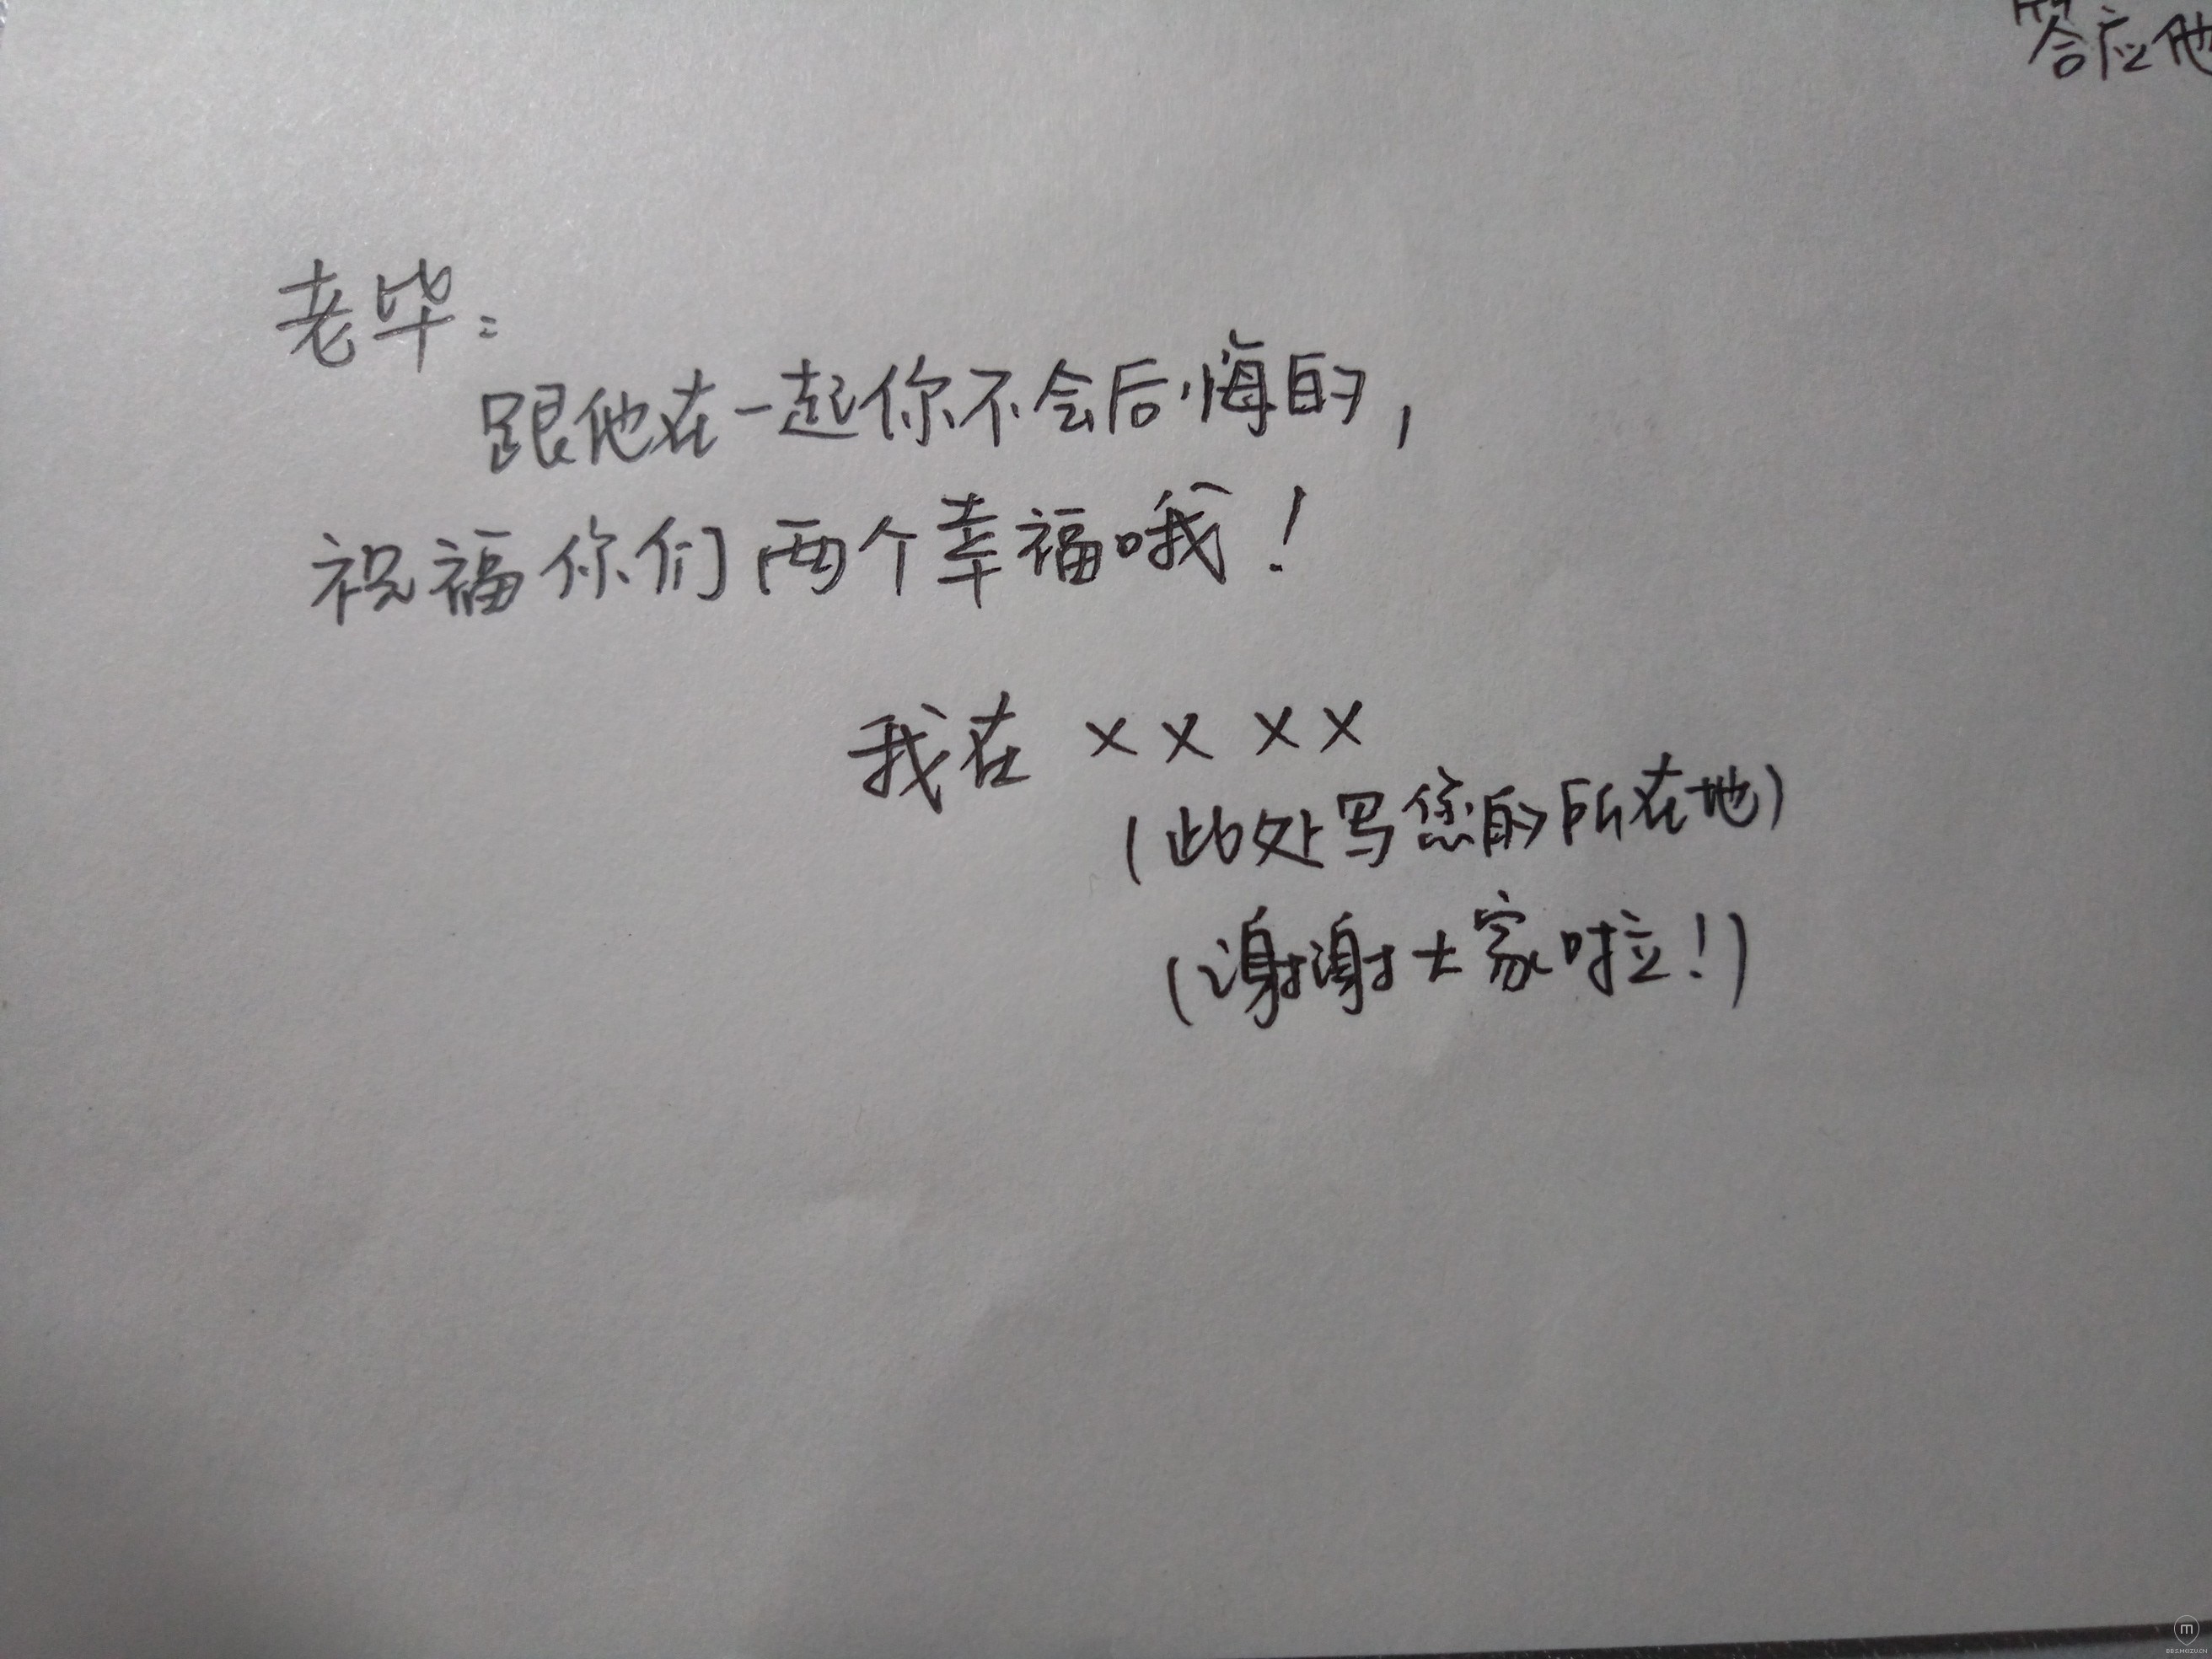 答应他
老毕：
跟他在一起你不会后悔的，
祝福你们两个幸福哦！
我在 ××××
（此处写您的所在地）
（谢谢大家啦！）